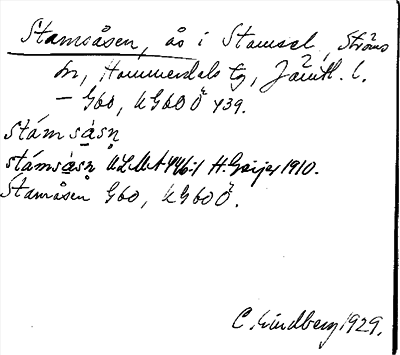 Stamsåsen, ås i Stamsel, Ströms
sn, Hammerdals tg, Jämtl. l.
— G60, KG60Ö 439.
stámsåsn̥
stámsåsn̥ ULMA 446:1 H. Geijer 1910.
Stamåsen G60, KG60Ö.
C. Lindberg 1929.